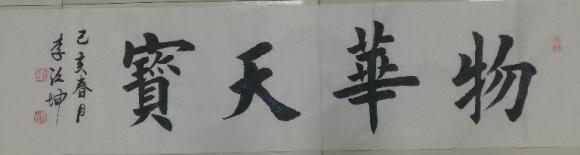 物華天寶
己亥春月
李江坤